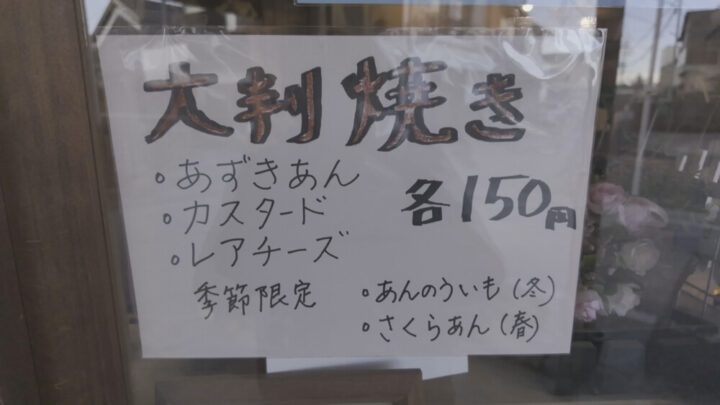 大判焼き
。あずきあん
。カスタード
。レアチーズ
各150円
季節限定
。あんのういも(冬)
。さくらあん(春)